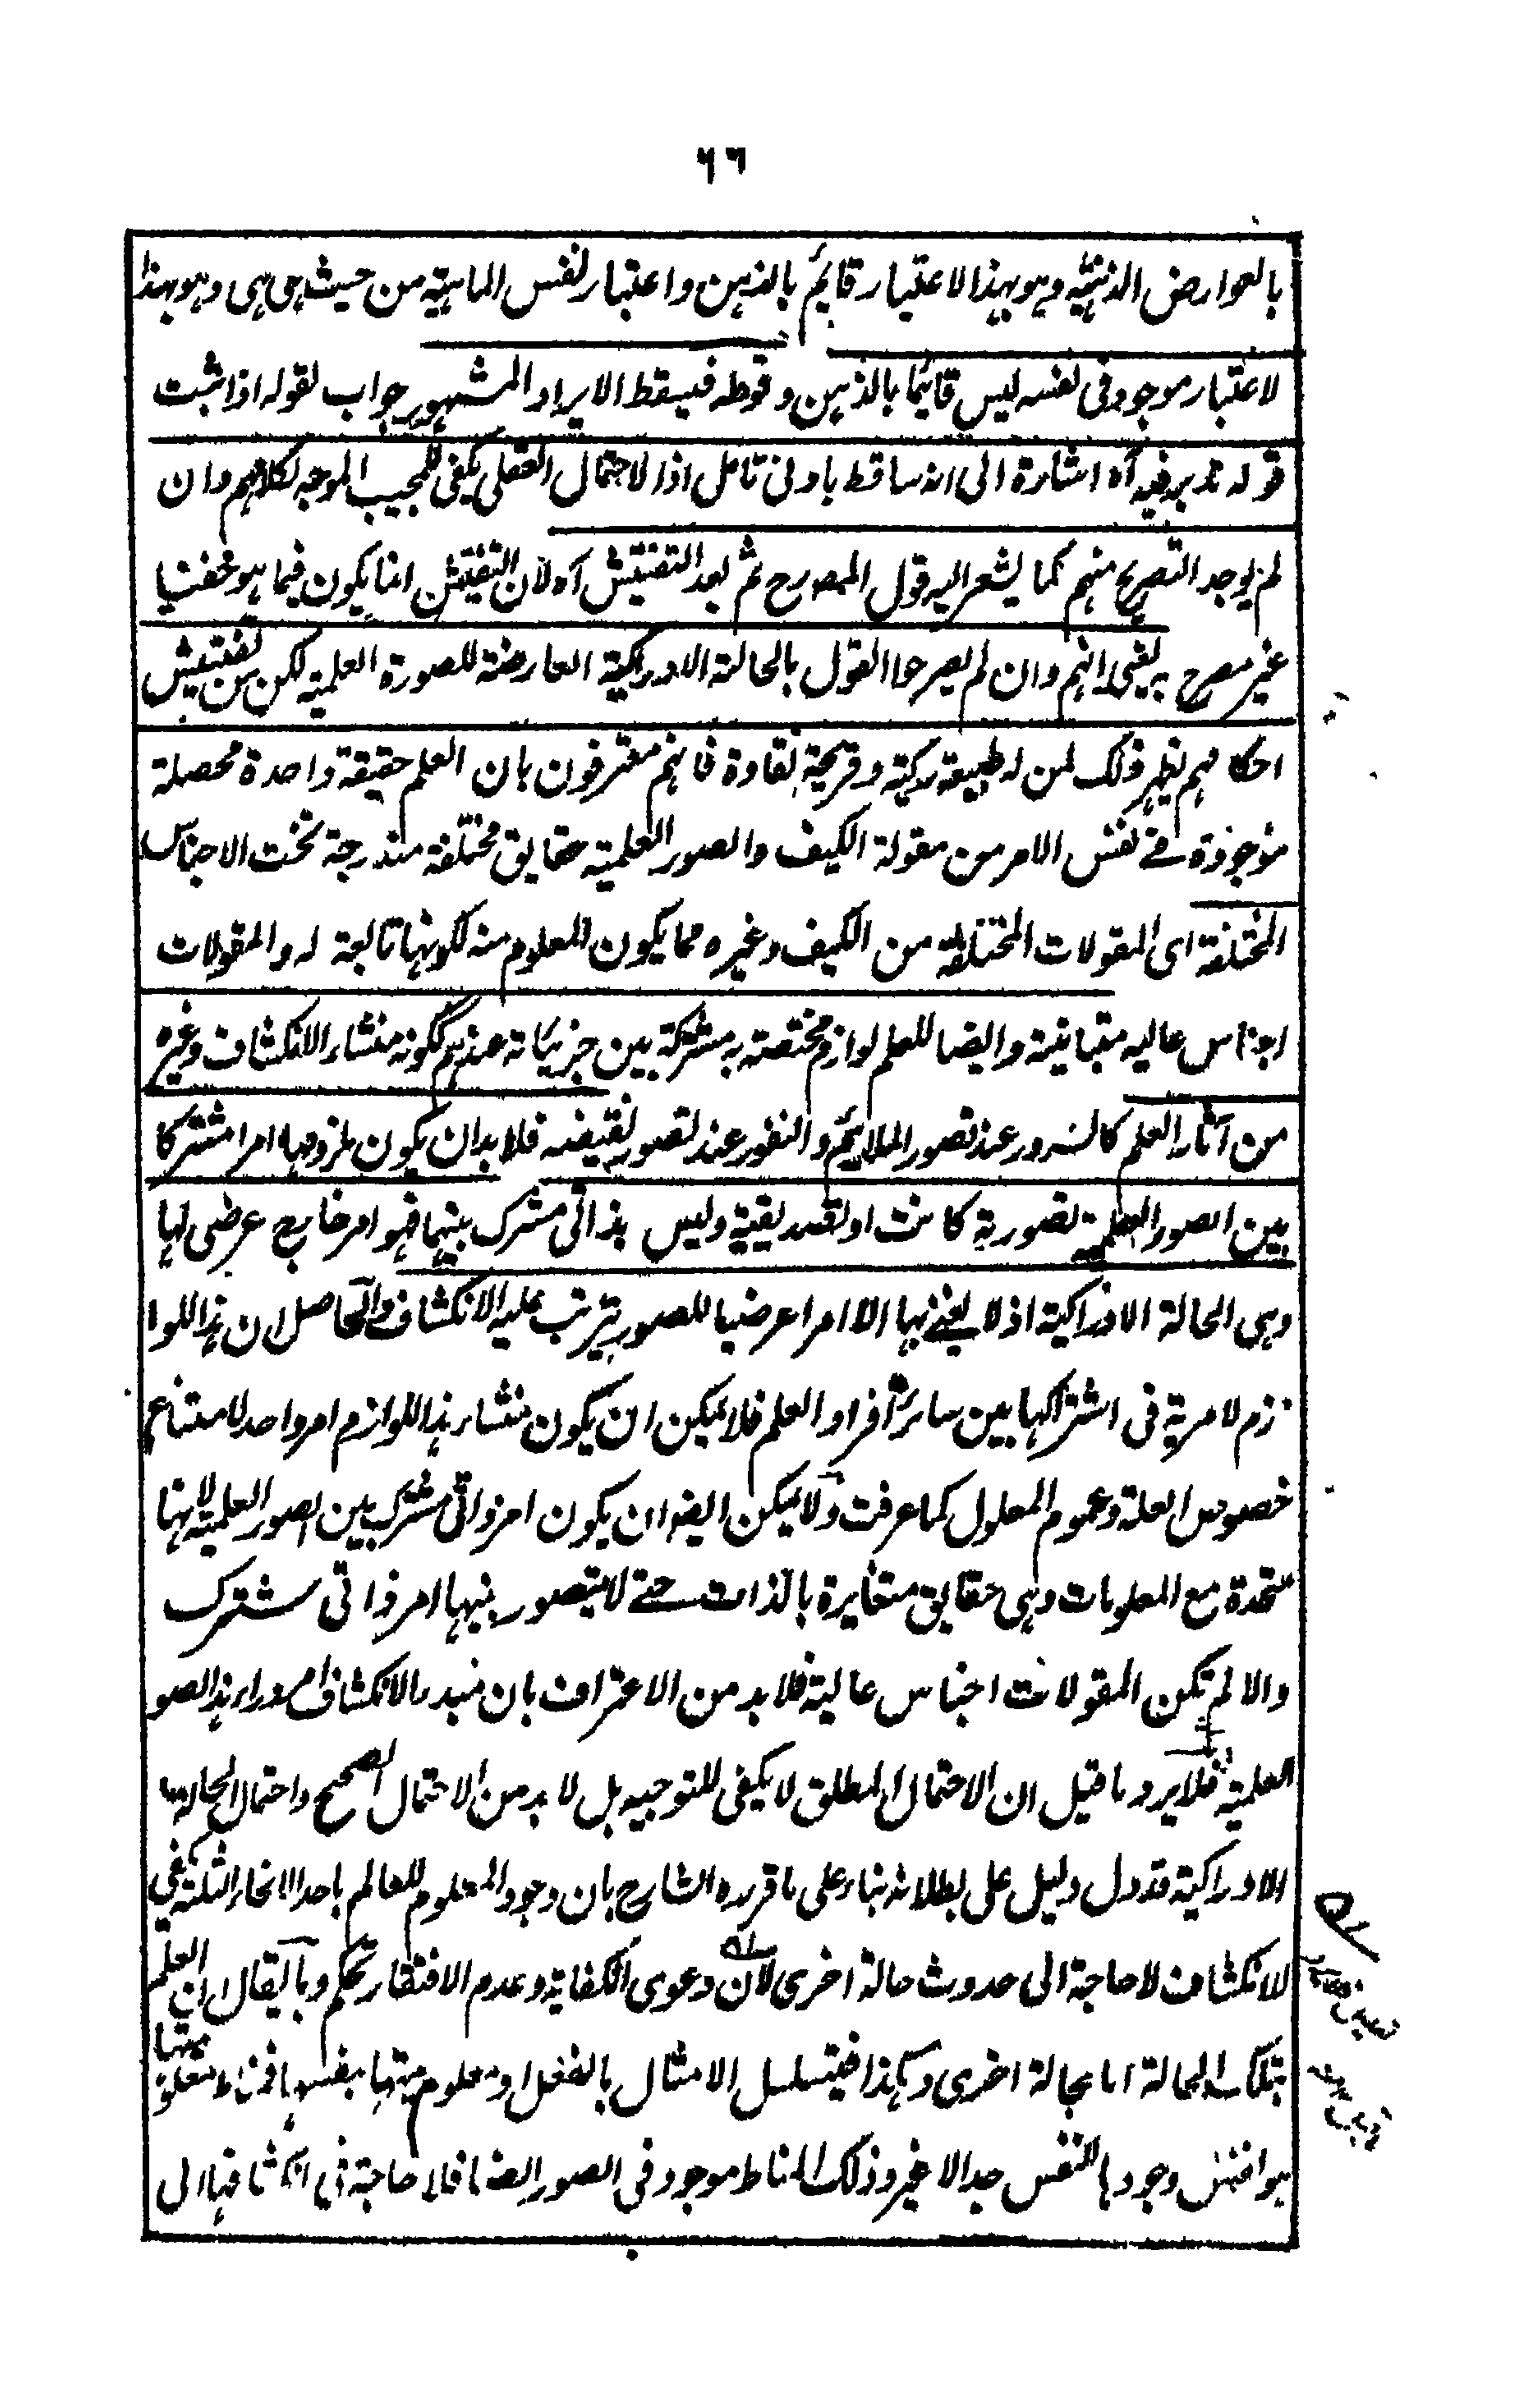 ٦٦
بالعوارض الذهنية وهو بهذا الاعتبار قايم بالذهن واعتبار نفس الماهية من حيث هي هي وهو بهذا
لاعتبار موجود في نفسه ليس قايما بالذهن وقوله فيسقط الايراد المشهور جواب لقوله اذا ثبت
قوله تدبر فيه آه اشارة الى انه ساقط بادنى تامل اذا لاحتمال العقلي يكفي للمجيب الموجه لكلامهم وان
لم يوجد التصريح منهم كما يشعر اليه قول المصرح ثم بعد التفتيش آه لان التفتيش انما يكون فيما هو خفيا
غير مصرح به يعني انهم وان لم يصرحوا القول بالحالة الادراكية العارضة للصورة العلمية لكن من تفتيش
احكامهم يظهر ذلك لمن له طبيعة زكية وقريحة نقادة فانهم معترفون بان العلم حقيقة واحدة محصلة
موجودة في نفس الامر من مقولة الكيف والصور العلمية حقايق مختلفة مندرجة تحت الاجناس
المختلفة اى المقولات المختلفة من الكيف وغيره مما يكون المعلوم منه لكونها تابعة له والمقولات
اجناس عاليه متباينة وايضا للعلم لوازم مختصة به مشتركة بين جزيياته عندهم ككونه منشاء الانكشاف وغيره
من آثار العلم كالسرور عند تصور الملايم والنفور عند تصور نقيضه فلا بد ان يكون ملزومها امرا مشتركا
بين الصور العلمية تصورية كانت او تصديقية وليس بذاتي مشترك بينهما فهو امر خارج عرضي لها
وهي الحالة الادراكية اذ لا يعني بها الا امرا عرضيا للصور يترتب عليه الانكشاف والحاصل ان هذا اللوا
زم لا مرية في اشتراكها بين ساير افراد العلم فلا يمكن ان يكون منشاء هذا اللوازم امر واحد لامتناع
خصوص العلة وعموم المعلول كما عرفت ولا يمكن ايضا ان يكون امر ذاتي مشترك بين الصور العلمية لانها
متحدة مع المعلومات وهي حقايق متغايرة بالذات حتى لا يتصور بينها امر ذاتي مشترك
والا لم تكن المقولات اجناس عالية فلا بد من الاعتراف بان مبدء الانكشاف امر وراء هذا الصو
العلمية فلا يرد ما قيل ان الاحتمال المطلق لا يكفي للتوجيه بل لا بد من الاحتمال الصحيح واحتمال الحالة
الادراكية قد دل دليل على بطلانه بناء على ما قرره الشارح بان وجود المعلوم للعالم باحد الانحاء الثلثة يكفي
لانكشاف لا حاجة الى حدوث حالة اخرى لان دعوى الكفاية وعدم الافتقار تحكم وبما يقال ان العلم
بتلك الحالة اما بحالة اخرى وهكذا فيتسلسل الامثال بالفعل او معلوميتها بنفسها فمناط معلوميتها
هو افنفس وجودها للنفس حد الا غير وذلك المناط موجود في الصور ايضا فلا حاجة في انكشافها الى